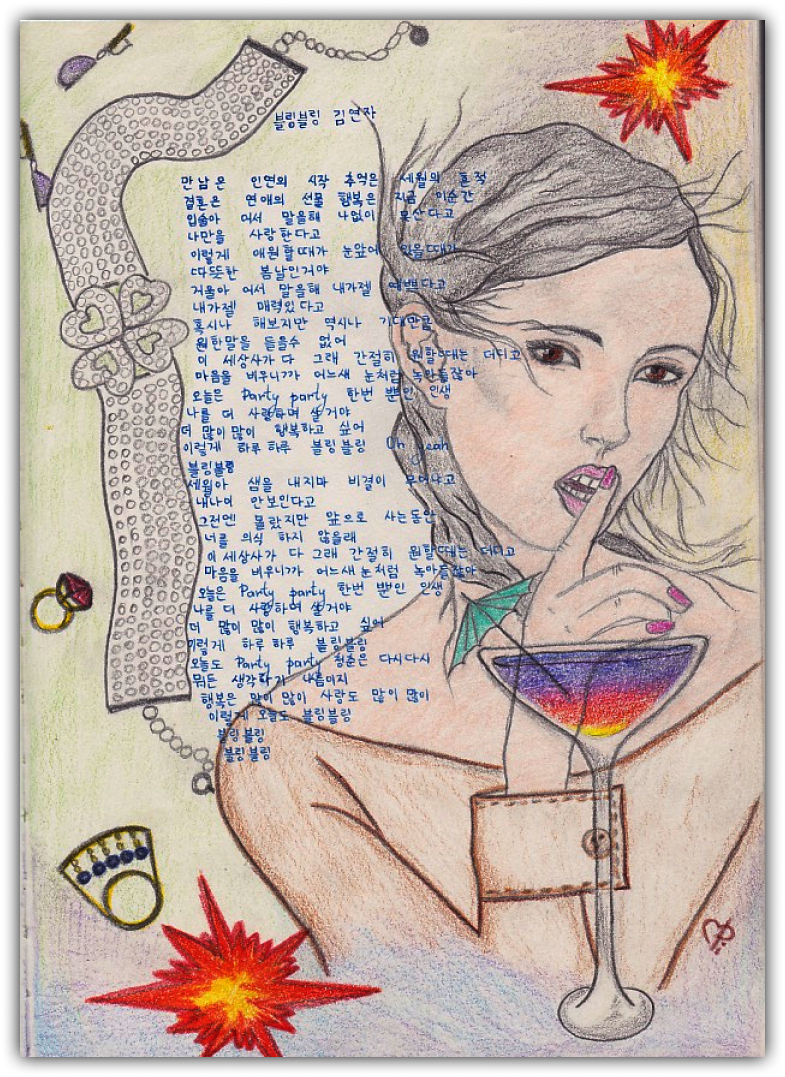 블링블링 김연자
만남은 인연의 시작 추억은 세월의 흔적
결혼은 연애의 선물 행복은 지금 이순간
입술아 어서 말을해 나없이 못산다고
나만을 사랑한다고
이렇게 애원할때가 눈앞에 있을때가
따뜻한 봄날인거야
거울아 어서 말을해 내가젤 예쁘다고
내가젤 매력있다고
혹시나 해보지만 역시나 기대만큼
원한말을 들을수 없어
이 세상사가 다 그래 간절히 원할때는 더디고
마음을 비우니까 어느새 눈처럼 녹아들잖아
오늘은 Party party 한번 뿐인 인생
나를 더 사랑하며 살거야
더 많이 많이 행복하고 싶어
이렇게 하루 하루 블링블링 Oh yeah
블링블링
세월아 샘을 내지마 비결이 무어냐고
내나이 안보인다고
그전엔 몰랐지만 앞으로 사는동안
너를 의식 하지 않을래
이 세상사가 다 그래 간절히 원할때는 더디고
마음을 비우니까 어느새 눈처럼 녹아들잖아
오늘은 Party party 한번 뿐인 인생
나를 더 사랑하며 살거야
더 많이 많이 행복하고 싶어
이렇게 하루 하루 블링블링
오늘도 Party party 청춘은 다시다시
뭐든 생각하기 나름이지
행복은 많이 많이 사랑도 많이 많이
이렇게 오늘도 블링블링
블링블링
블링블링